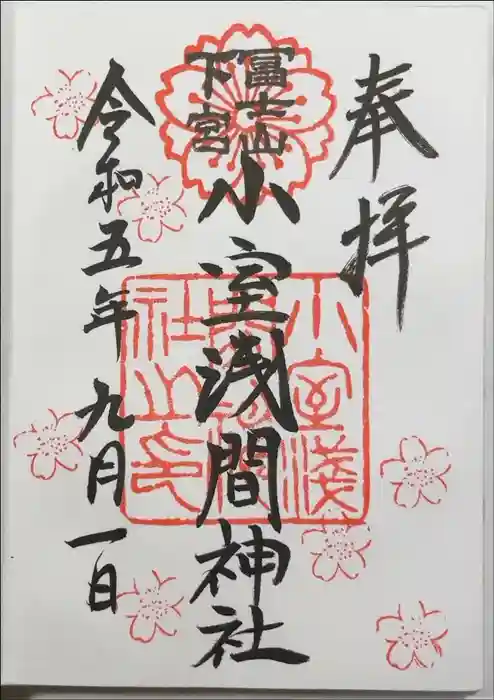 奉拝
冨士山
下宮
小室浅間神社
令和五年九月一日
小室浅
間神
社之印